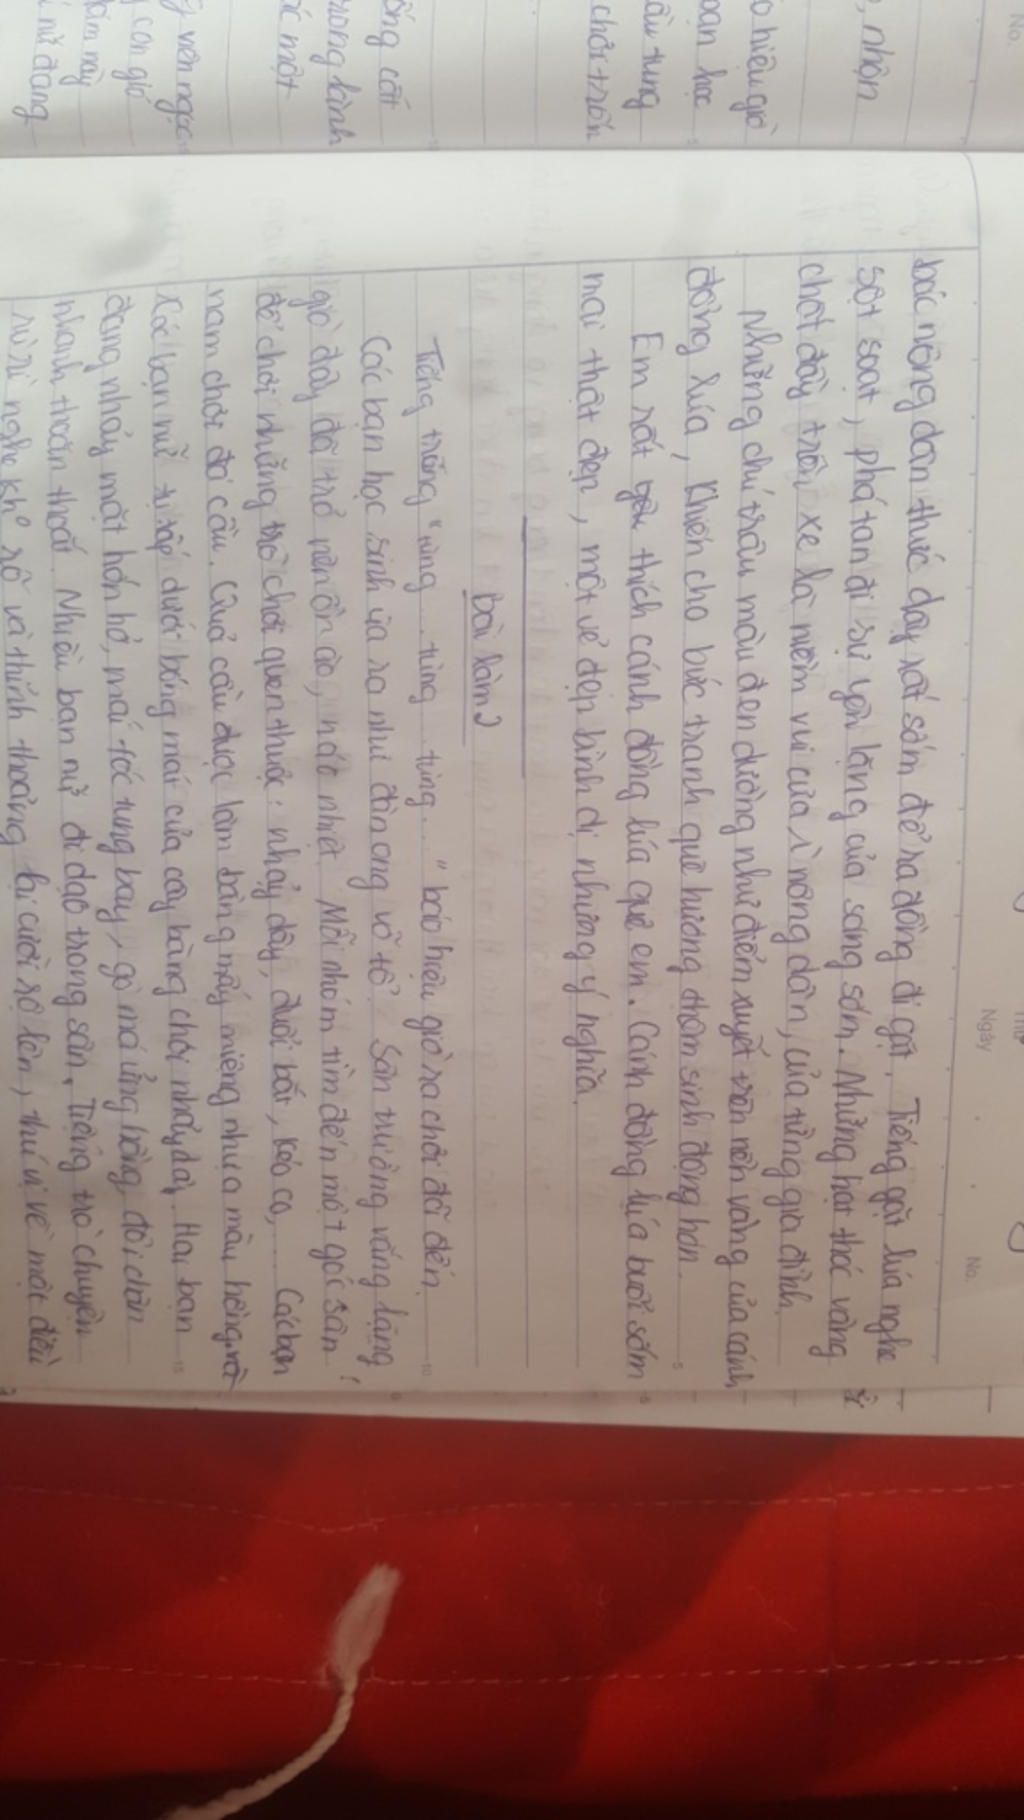 No.
, nhộn
o hiệu giờ
bạn học
cầu tung
chơi trốn
ống cót
trong hình
óc một
y nên ngọc
cơn gió
nữ đang
Ngày
No.
bác nông dân thức dậy rất sớm để ra đồng đi gặt. Tiếng gặt lúa nghe
sột soạt, phá tan đi sự yên lặng của sáng sớm. Những hạt thóc vàng
chất đầy trên xe là niềm vui của nông dân, của từng gia đình.
Những chú trâu màu đen dường như điểm xuyết trên nền vàng của cánh
đồng lúa, khiến cho bức tranh quê hương thêm sinh động hơn.
Em rất yêu thích cánh đồng lúa quê em. Cánh đồng lúa buổi sớm
mai thật đẹp, một vẻ đẹp bình dị nhưng ý nghĩa.
Bài làm 2
Tiếng trống "tùng... tùng... tùng..." báo hiệu giờ ra chơi đã đến.
Các bạn học sinh ùa ra như đàn ong vỡ tổ. Sân trường vắng lặng
giờ đây đã trở nên ồn ào, náo nhiệt. Mỗi nhóm tìm đến một góc sân
để chơi những trò chơi quen thuộc: nhảy dây, đuổi bắt, kéo co,.... Các bạn
nam chơi đá cầu. Quả cầu được làm bằng mấy miếng nhựa màu hồng, và
Các bạn nữ tụ tập dưới bóng mát của cây bàng chơi nhảy dây. Hai bạn
đang nhảy mặt hớn hở, mái tóc tung bay, gò má ửng hồng, đôi chân
nhanh thoăn thoắt. Nhiều bạn nữ đi dạo trong sân. Tiếng trò chuyện
rù rì nghe khó rõ và thỉnh thoảng lại cười rộ lên, thú vị về một điều